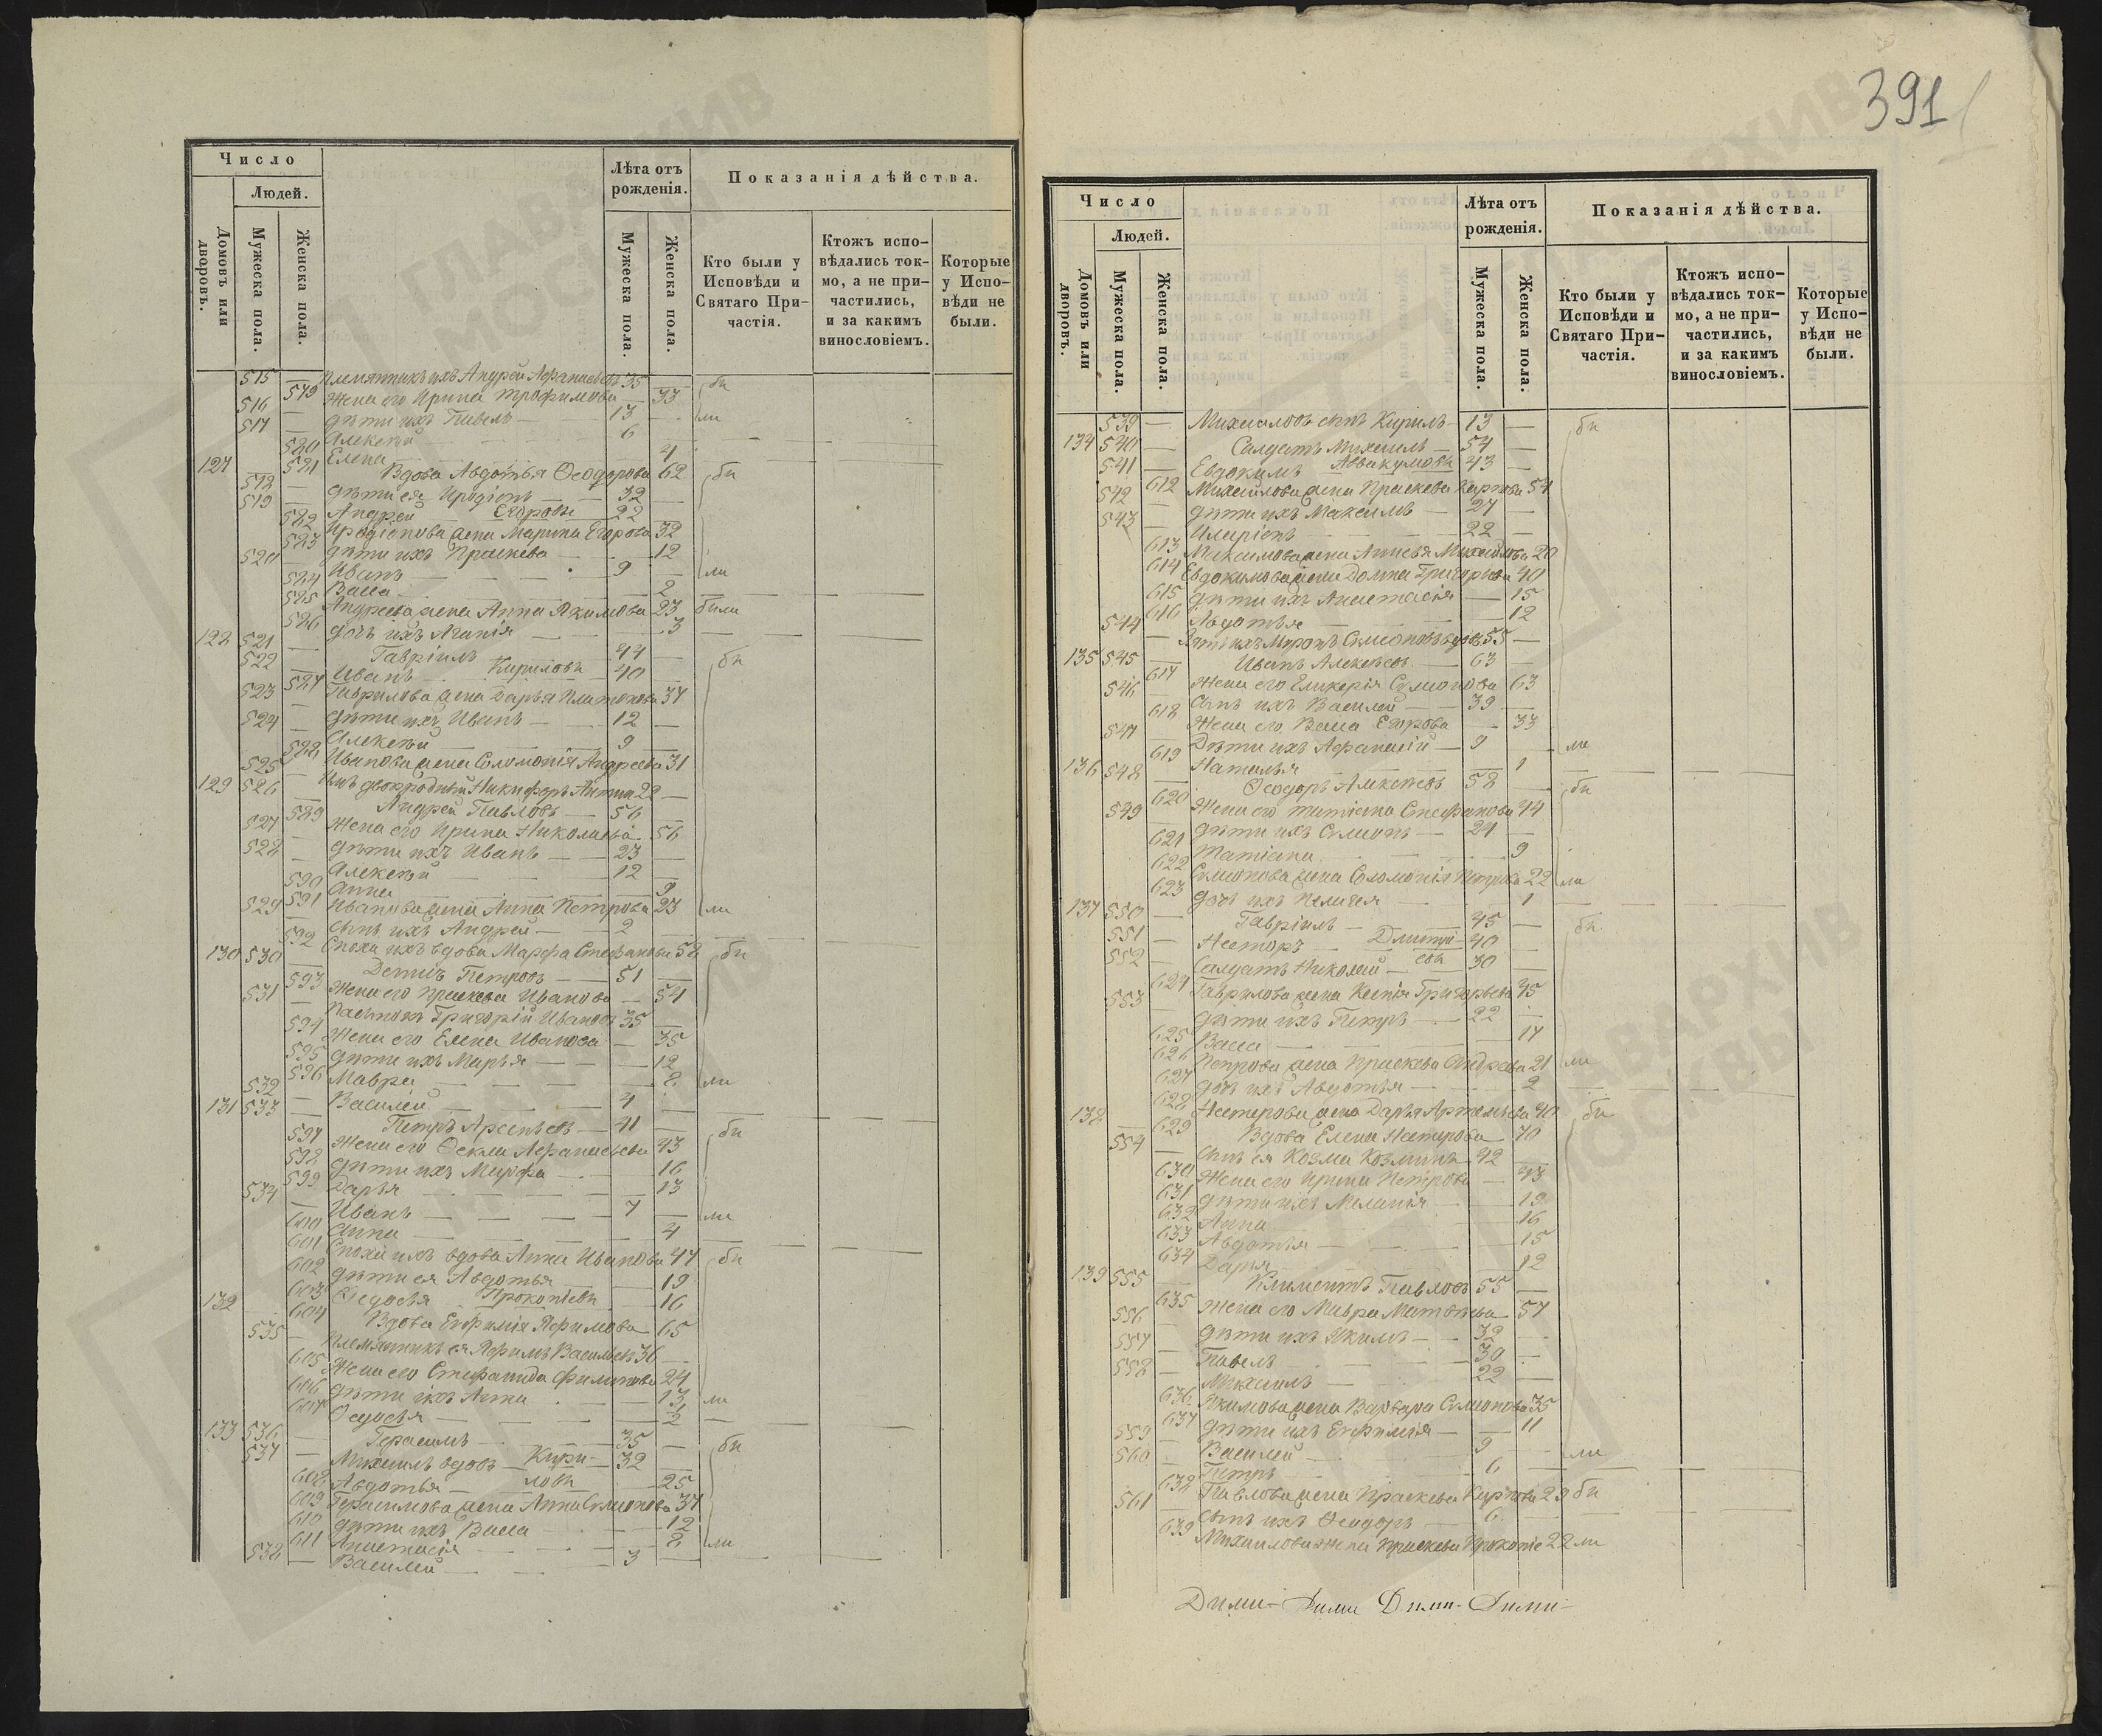 391
Число
Людей.
Домовъ или дворовъ.
Мужеска пола.
Женска пола.
Лѣта отъ рожденія.
Мужеска пола.
Женска пола.
Показанія дѣйства.
Кто были у Исповѣди и Святаго Причастія.
Ктожъ исповѣдались токмо, а не причастились, и за какимъ винословіемъ.
Которые у Исповѣди не были.
515 — Племянникъ ихъ Андрей Афанасьевъ 35
519 Жена его Ирина Трофимова — 33 би
516 — дѣти ихъ Павелъ — 13 — ли
517 — Алексѣй 6
520 Елена 4
127 — 521 Вдова Авдотья Ѳеодорова 62 би
512 — дѣти ея Иродіонъ — 32 —
519 — Андрей Егоровы 22 —
522 Иродіонова жена Марина Егорова 32
523 дѣти ихъ Праскева — 12
520 — Иванъ — 9 — ли
524 Васса — 2
525 Андреева жена Анна Якимова 23 были
526 дочь ихъ Агапія — 3
122 521 — Гавріилъ 44 — би
522 — Иванъ Кириловы 40 —
527 Гаврилова жена Дарья Платонова 37
523 — дѣти ихъ Иванъ — 12 —
524 — Алексѣй 9
528 Иванова жена Соломонія Андреева 31
525 — Ихъ двоюродный Никифоръ Антип 22 —
129 526 — Андрей Павловъ — 56
529 Жена его Ирина Николаева 56
527 — дѣти ихъ Иванъ — 23 —
528 — Алексѣй — 12
590 Анна 9
591 Иванова жена Анна Петрова 23 ли
529 — сынъ ихъ Андрей — 2
592 Сноха ихъ вдова Марфа Стефанова 52 би
130 530 — Денисъ Петровъ 51
593 Жена его Праскева Иванова — 54
531 — Пасынокъ Григорій Ивановъ 35
594 Жена его Елена Иванова — 35
595 дѣти ихъ Марья — 12
596 Мавра — 8 ли
532 — Василей — 4 —
131 533 — Петръ Арсеньевъ — 41 би
597 Жена его Ѳекла Афанасьева 43
592 дѣти ихъ Марфа — 16
599 Дарья — 13
534 — Иванъ — 7 — ли
600 Анна — 4
601 Сноха ихъ вдова Анна Иванова 47 би
602 дѣти ея Авдотья — 19
603 Ѳедосья Прокопіевы 16
132 604 Вдова Евфимія Яфимова 65
535 — Племянникъ ея Яфимъ Васильевъ 36 —
605 Жена его Стефанида Филипова 24
606 дѣти ихъ Анна — 13 ли
607 Ѳедосья — 2
133 536 — Герасимъ 35 — би
537 — Михаилъ вдовъ Кири- 32
602 Авдотья ловы 25
609 Герасимова жена Анна Симонова 37
610 дѣти ихъ Васса 12
611 Анастасія 8 ли
538 — Василей — 3
Число
Людей.
Домовъ или дворовъ.
Мужеска пола.
Женска пола.
Лѣта отъ рожденія.
Мужеска пола.
Женска пола.
Показанія дѣйства.
Кто были у Исповѣди и Святаго Причастія.
Ктожъ исповѣдались токмо, а не причастились, и за какимъ винословіемъ.
Которые у Исповѣди не были.
539 — Михаиловъ сынъ Кирилъ 13 — би
134 540 — Салдатъ Михаилъ — 54 —
541 — Евдокимъ Аввакумовы 43 —
612 Михайлова жена Праскева Карпова 54
542 — дѣти ихъ Максимъ — 27 —
543 — Иларіонъ 22 —
613 Максимова жена Анисья Михайлова 20
614 Евдокимова жена Домна Григорьева 40
615 дѣти ихъ Анастасія — 15
616 Авдотья — 12
544 — Зять ихъ Миронъ Симоновъ вдовъ 55 —
135 545 — Иванъ Алексѣевъ — 63 —
617 Жена его Гликерія Симонова 63
546 — Сынъ ихъ Василей — 39 —
618 Жена его Васса Егорова 33
547 — Дѣти ихъ Афанасій — 9 — ли
619 Наталья 1
136 548 — Ѳеодоръ Алексѣевъ 58 — би
620 Жена его Татіана Стефанова 44
549 — дѣти ихъ Симонъ — 24 —
621 Татіана 9
622 Симонова жена Соломонія Петрова 22 ли
623 дочь ихъ Пелагея — 1
137 550 — Гавріилъ — 45 — би
551 — Несторъ — Дмитрі- 40 —
552 — Салдатъ Николай — евы 30 —
624 Гаврилова жена Ксенія Григорьева 45
553 — дѣти ихъ Петръ — 22 —
625 Васса 17
626 Петрова жена Праскева Андреева 21 ли
627 дочь ихъ Авдотья — 2
628 Нестерова жена Дарья Артемьева 40 би
138 — 629 Вдова Елена Нестерова 70
554 — Сынъ ея Козма Козминъ 42
630 Жена его Ирина Петрова — 43
631 дѣти ихъ Меланія 19
632 Анна 16
633 Авдотья 15
634 Дарья 12
139 555 — Климентъ Павловъ 55 —
635 Жена его Мавра Матвѣева 57
556 — дѣти ихъ Якимъ — 32 —
557 — Павелъ 30
558 — Михаилъ — 22 —
636 Якимова жена Варвара Симонова 35
637 дѣти ихъ Евфимія — 11
559 — Василей 9 ли
560 — Петръ 6
638 Павлова жена Праскева Карпова 29 би
561 сынъ ихъ Ѳеодоръ — 6
639 Михаилова жена Праскева Прокопіе 22 ли
Дими- Дими Дими- Дими-